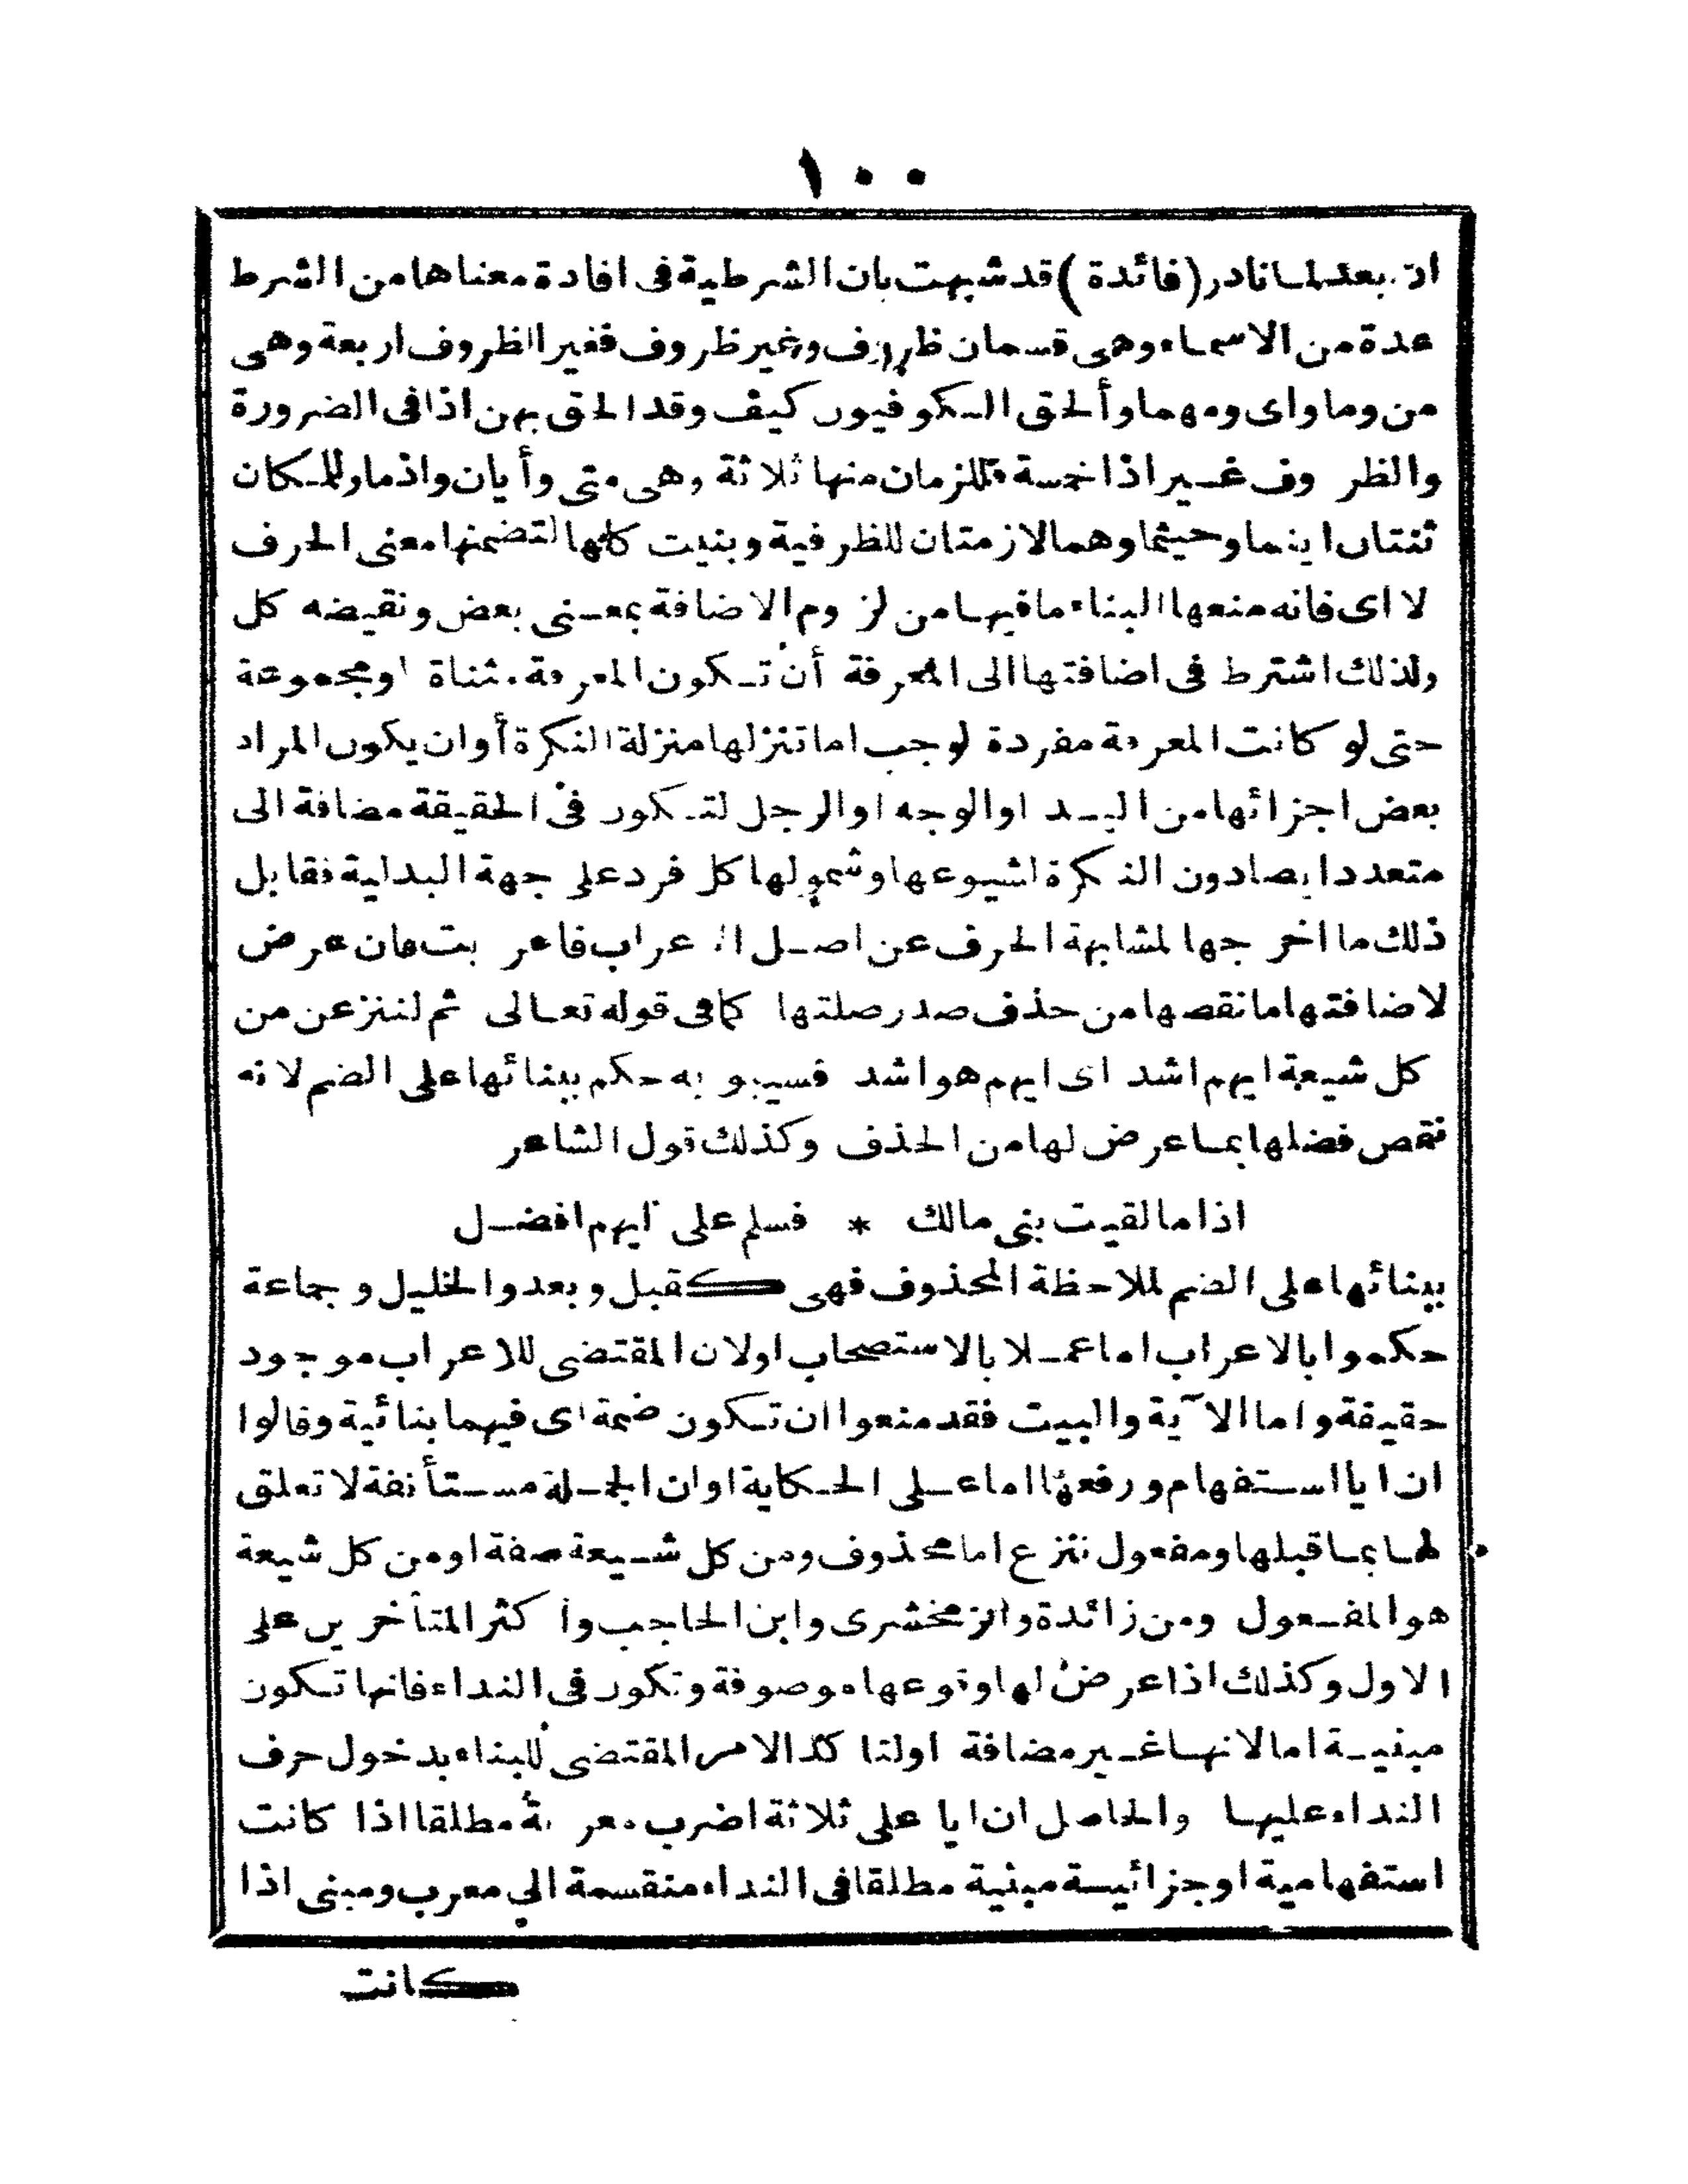 ١٠٠
ان بعد لما نادر (فائدة) قد شبهت بان الشرطية فى افادة معناها من الشرط
عدة من الاسماء وهى قسمان ظروف وغير ظروف فغير الظروف اربعة وهى
من وما واى ومهما وألحق الكوفيون كيف وقد الحق بهن اذا فى الضرورة
والظروف غير اذا خمسة فللزمان منها ثلاثة وهى متى وأيان واذما وللمكان
ثنتان اينما وحيثما وهما لازمتان للظرفية وبنيت كلها لتضمنها معنى الحرف
لا اى فانه منعها البناء ما فيها من لزوم الاضافة بمعنى بعض ونقيضه كل
ولذلك اشترط فى اضافتها الى المعرفة أن تكون المعرفة مثناة او مجموعة
حتى لو كانت المعرفة مفردة لوجب اما تنزلها منزلة النكرة أو ان يكون المراد
بعض اجزائها من اليد او الوجه او الرجل لتكون فى الحقيقة مضافة الى
متعدد ايضا دون النكرة لشيوعها وشمولها كل فرد على جهة البداية فقابل
ذلك ما اخرجها لمشابهة الحرف عن اصل الاعراب فاعربت فان عرض
لاضافتها ما نقصها من حذف صدر صلتها كما فى قوله تعالى ثم لننزعن من
كل شيعة ايهم اشد اى ايهم هو اشد فسيبويه حكم ببنائها على الضم لانه
نقص فضلها بما عرض لها من الحذف وكذلك قول الشاعر
اذا ما لقيت بنى مالك * فسلم على ايهم افضل
ببنائها على الضم لملاحظة المحذوف فهى كقبل وبعد والخليل وجماعة
حكموا بالاعراب اما عملا بالاستصحاب او لان المقتضى للاعراب موجود
حقيقة واما الآية والبيت فقد منعوا ان تكون ضمة اى فيهما بنائية وقالوا
ان ايا استفهام ورفعها اما على الحكاية او ان الجملة مستأنفة لا تعلق
لها بما قبلها ومفعول ننزع اما محذوف ومن كل شيعة صفة او من كل شيعة
هو المفعول ومن زائدة والزمخشرى وابن الحاجب وأكثر المتأخرين على
الاول وكذلك اذا عرض لها وقوعها موصوفة وتكون فى النداء فانها تكون
مبنية اما لانها غير مضافة او لتاكد الامر المقتضى للبناء بدخول حرف
النداء عليها والحاصل ان ايا على ثلاثة اضرب معربة مطلقا اذا كانت
استفهامية او جزائية مبنية مطلقا فى النداء منقسمة الي معرب ومبنى اذا
كانت